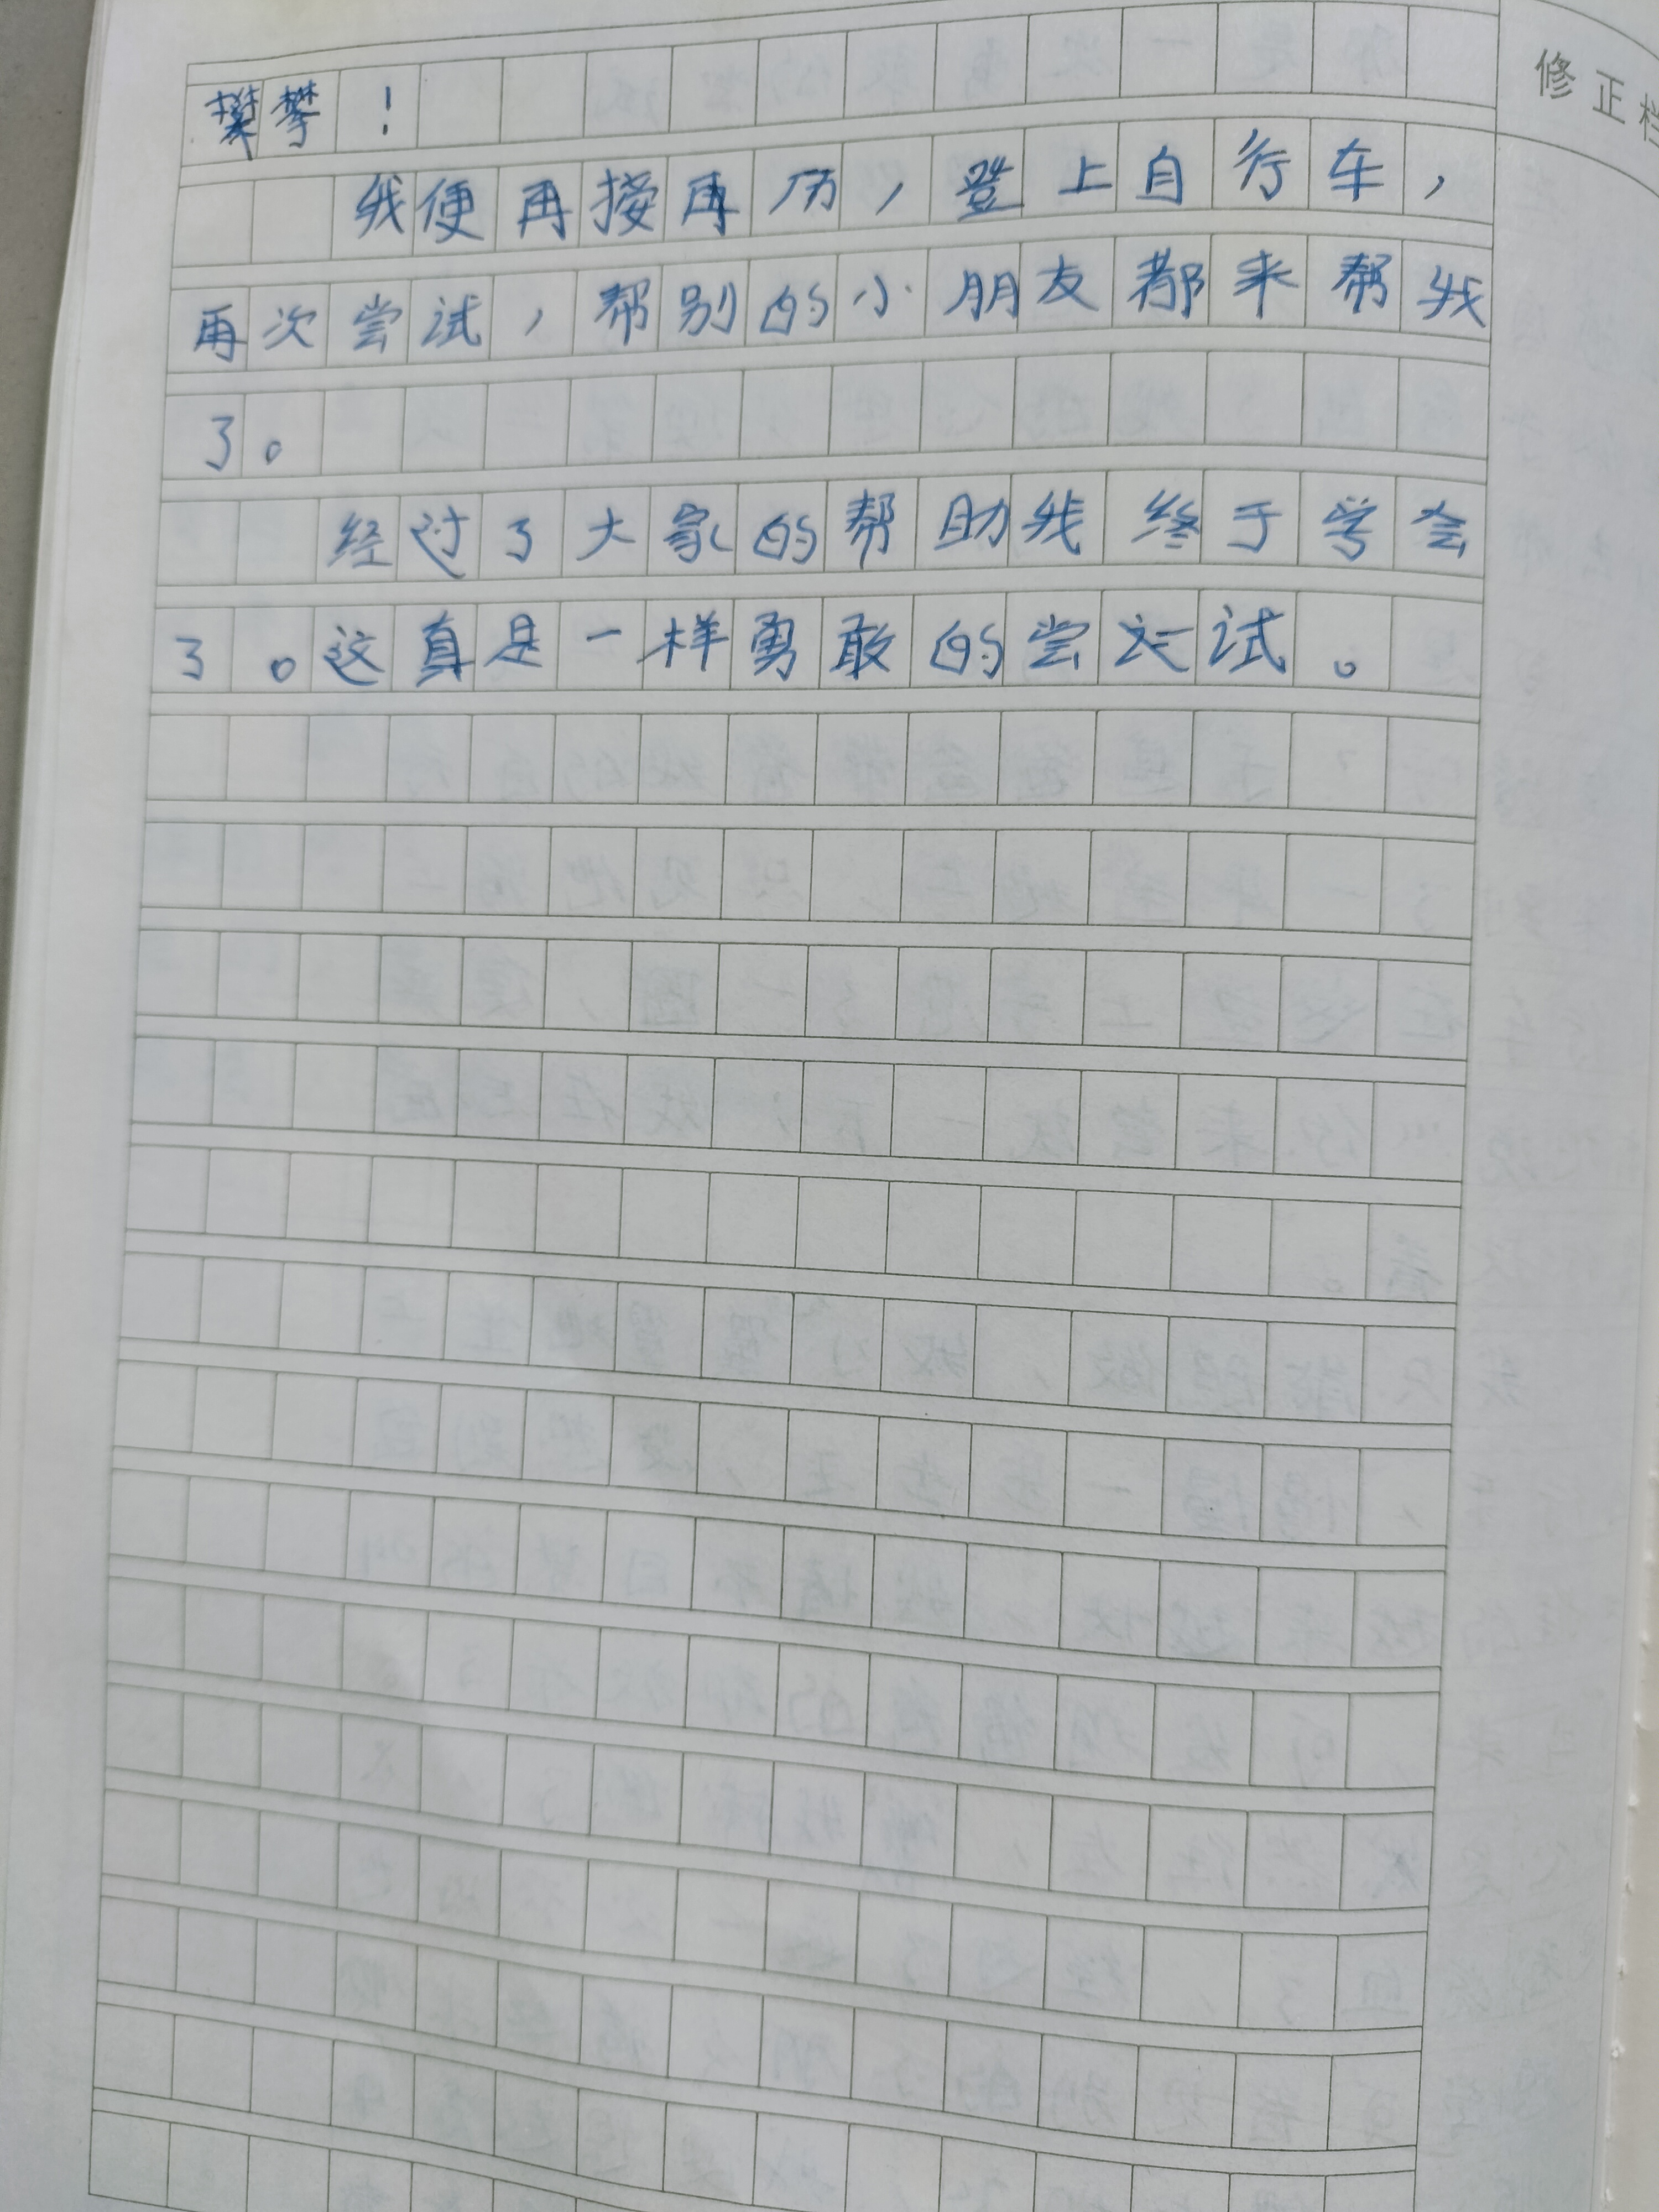 修正栏
攀！
我便再接再历，登上自行车，
再次尝试，帮别的小朋友都来帮我
了。
经过了大家的帮助我终于学会
了。这真是一样勇敢的尝试。